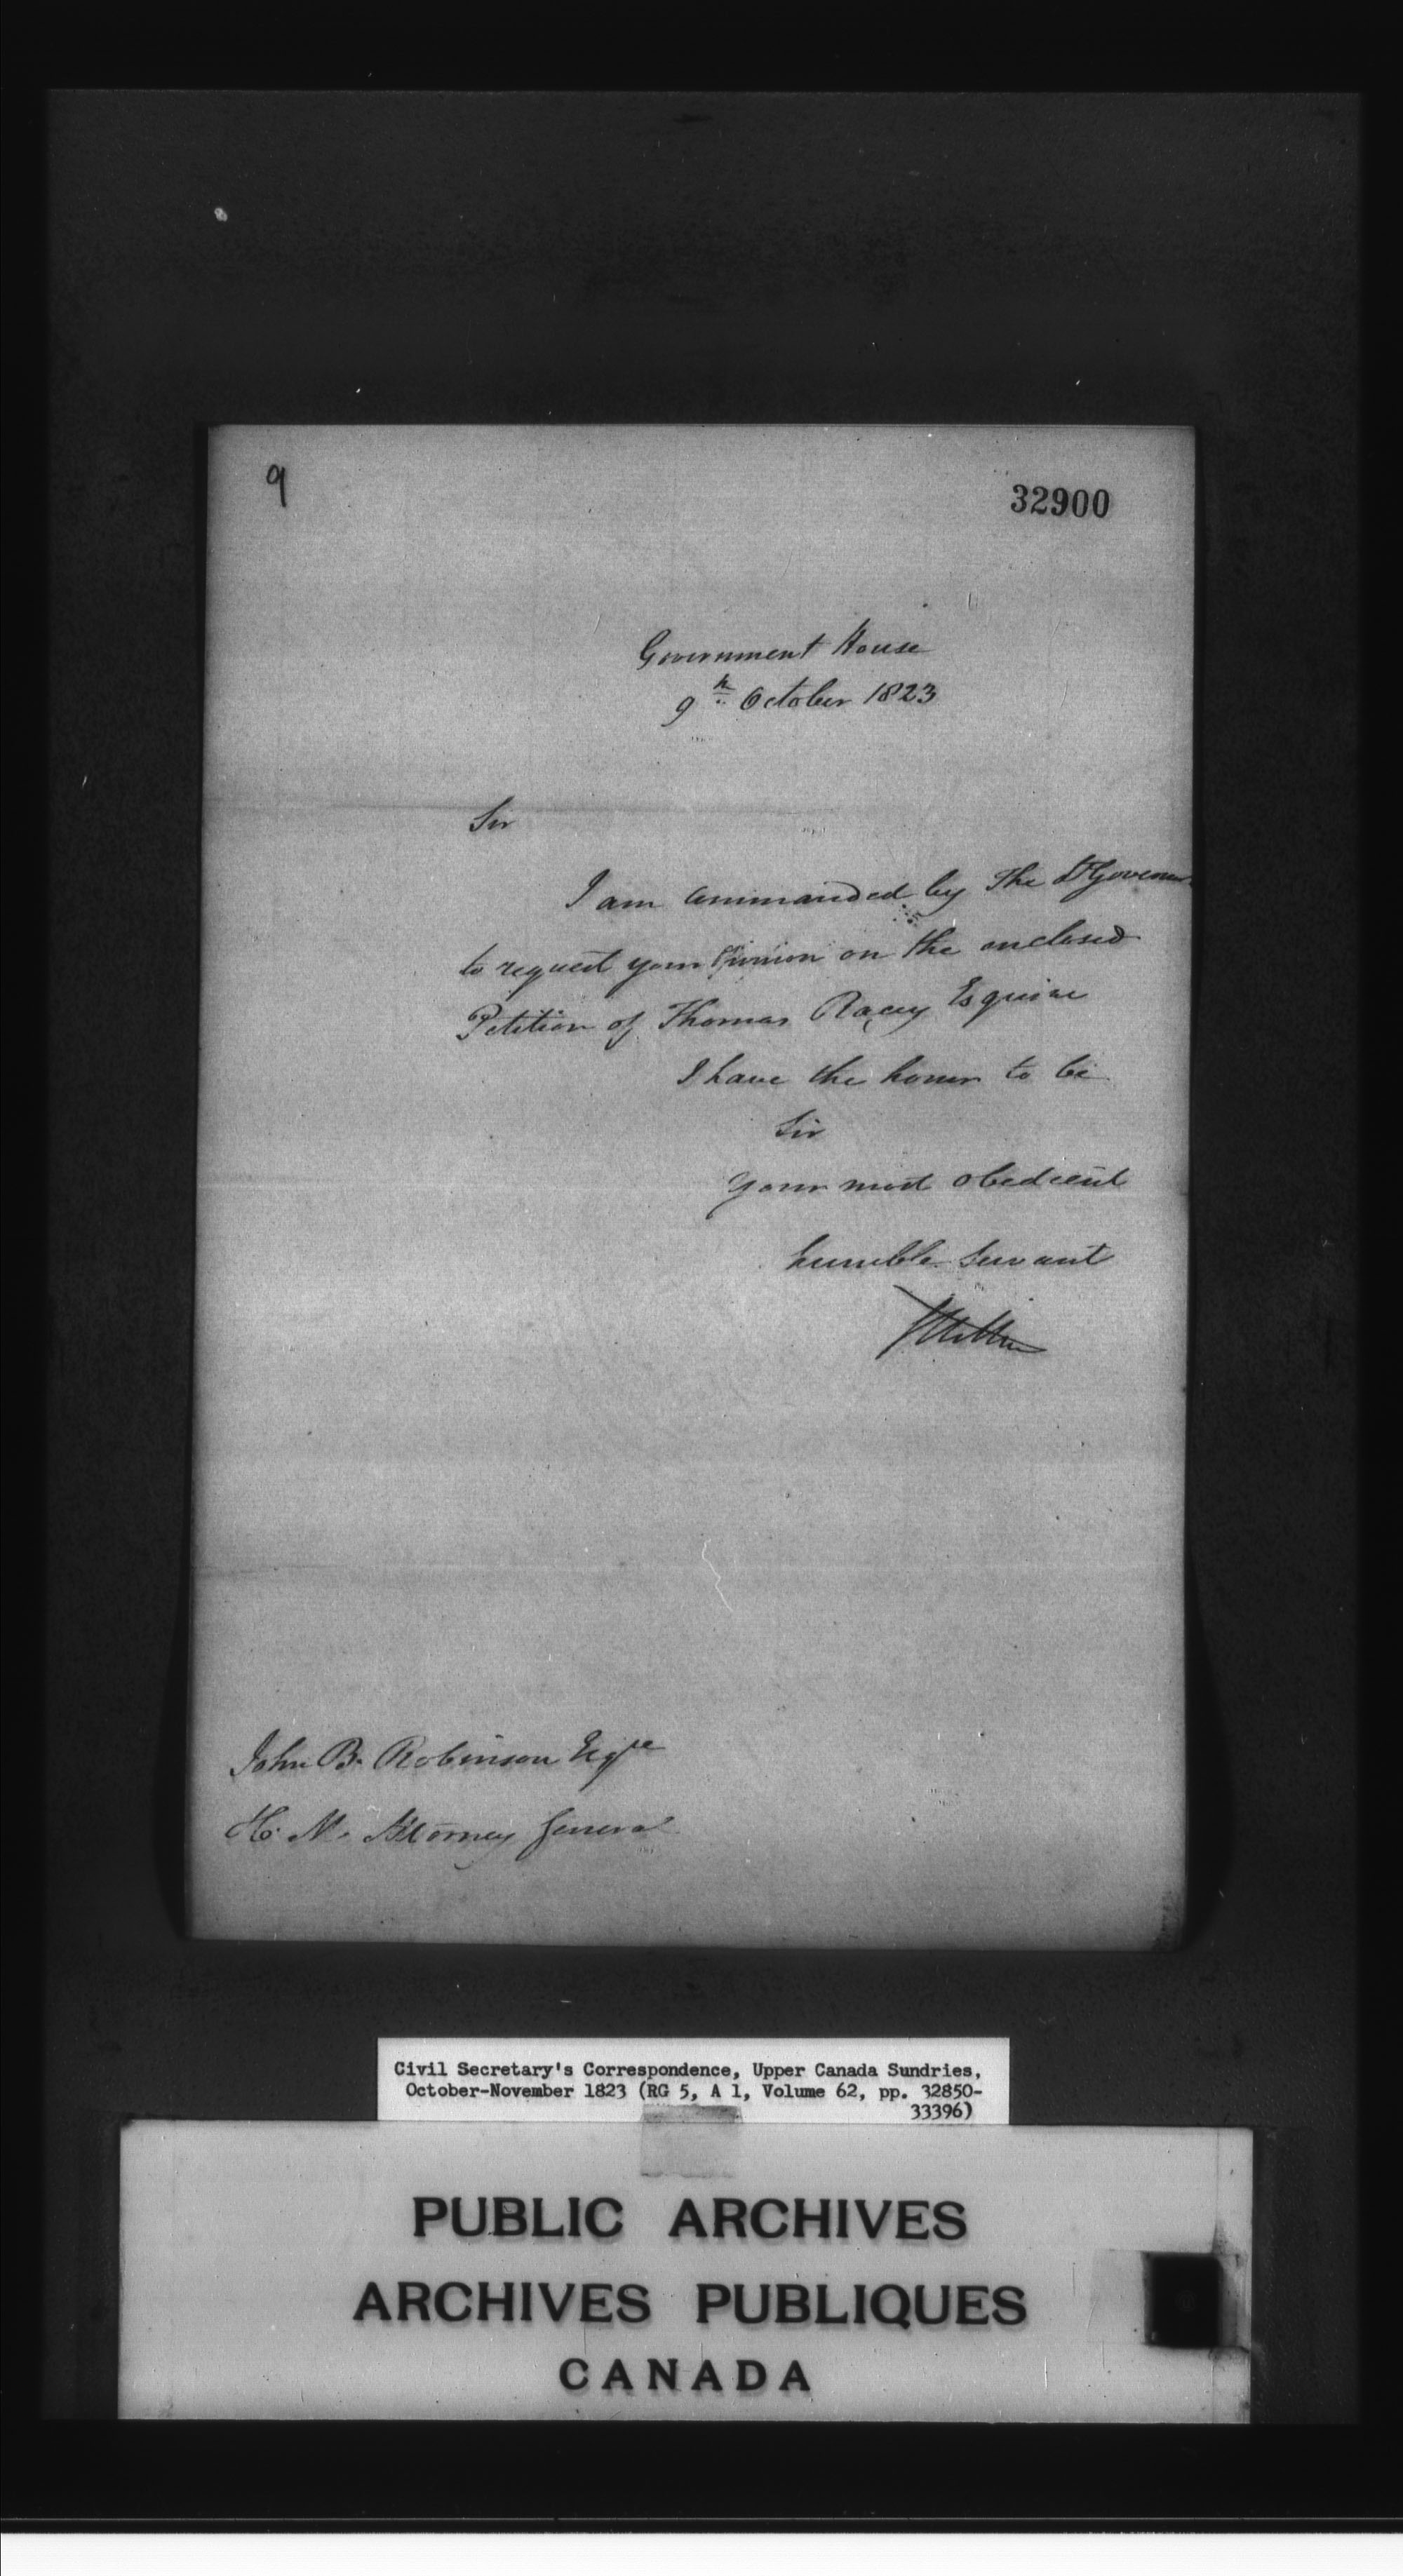 9
32900
Government House
9th October 1823
Sir
I am commanded by The Lt Governor
to request your Opinion on the enclosed
Petition of Thomas Racey Esquire
I have the honor to be
Sir
Your most obedient
humble Servant
John B. Robinson Esqre
H. M. Attorney General
Civil Secretary's Correspondence, Upper Canada Sundries,
October-November 1823 (RG 5, A 1, Volume 62, pp. 32850-
33396)
PUBLIC ARCHIVES
ARCHIVES PUBLIQUES
CANADA